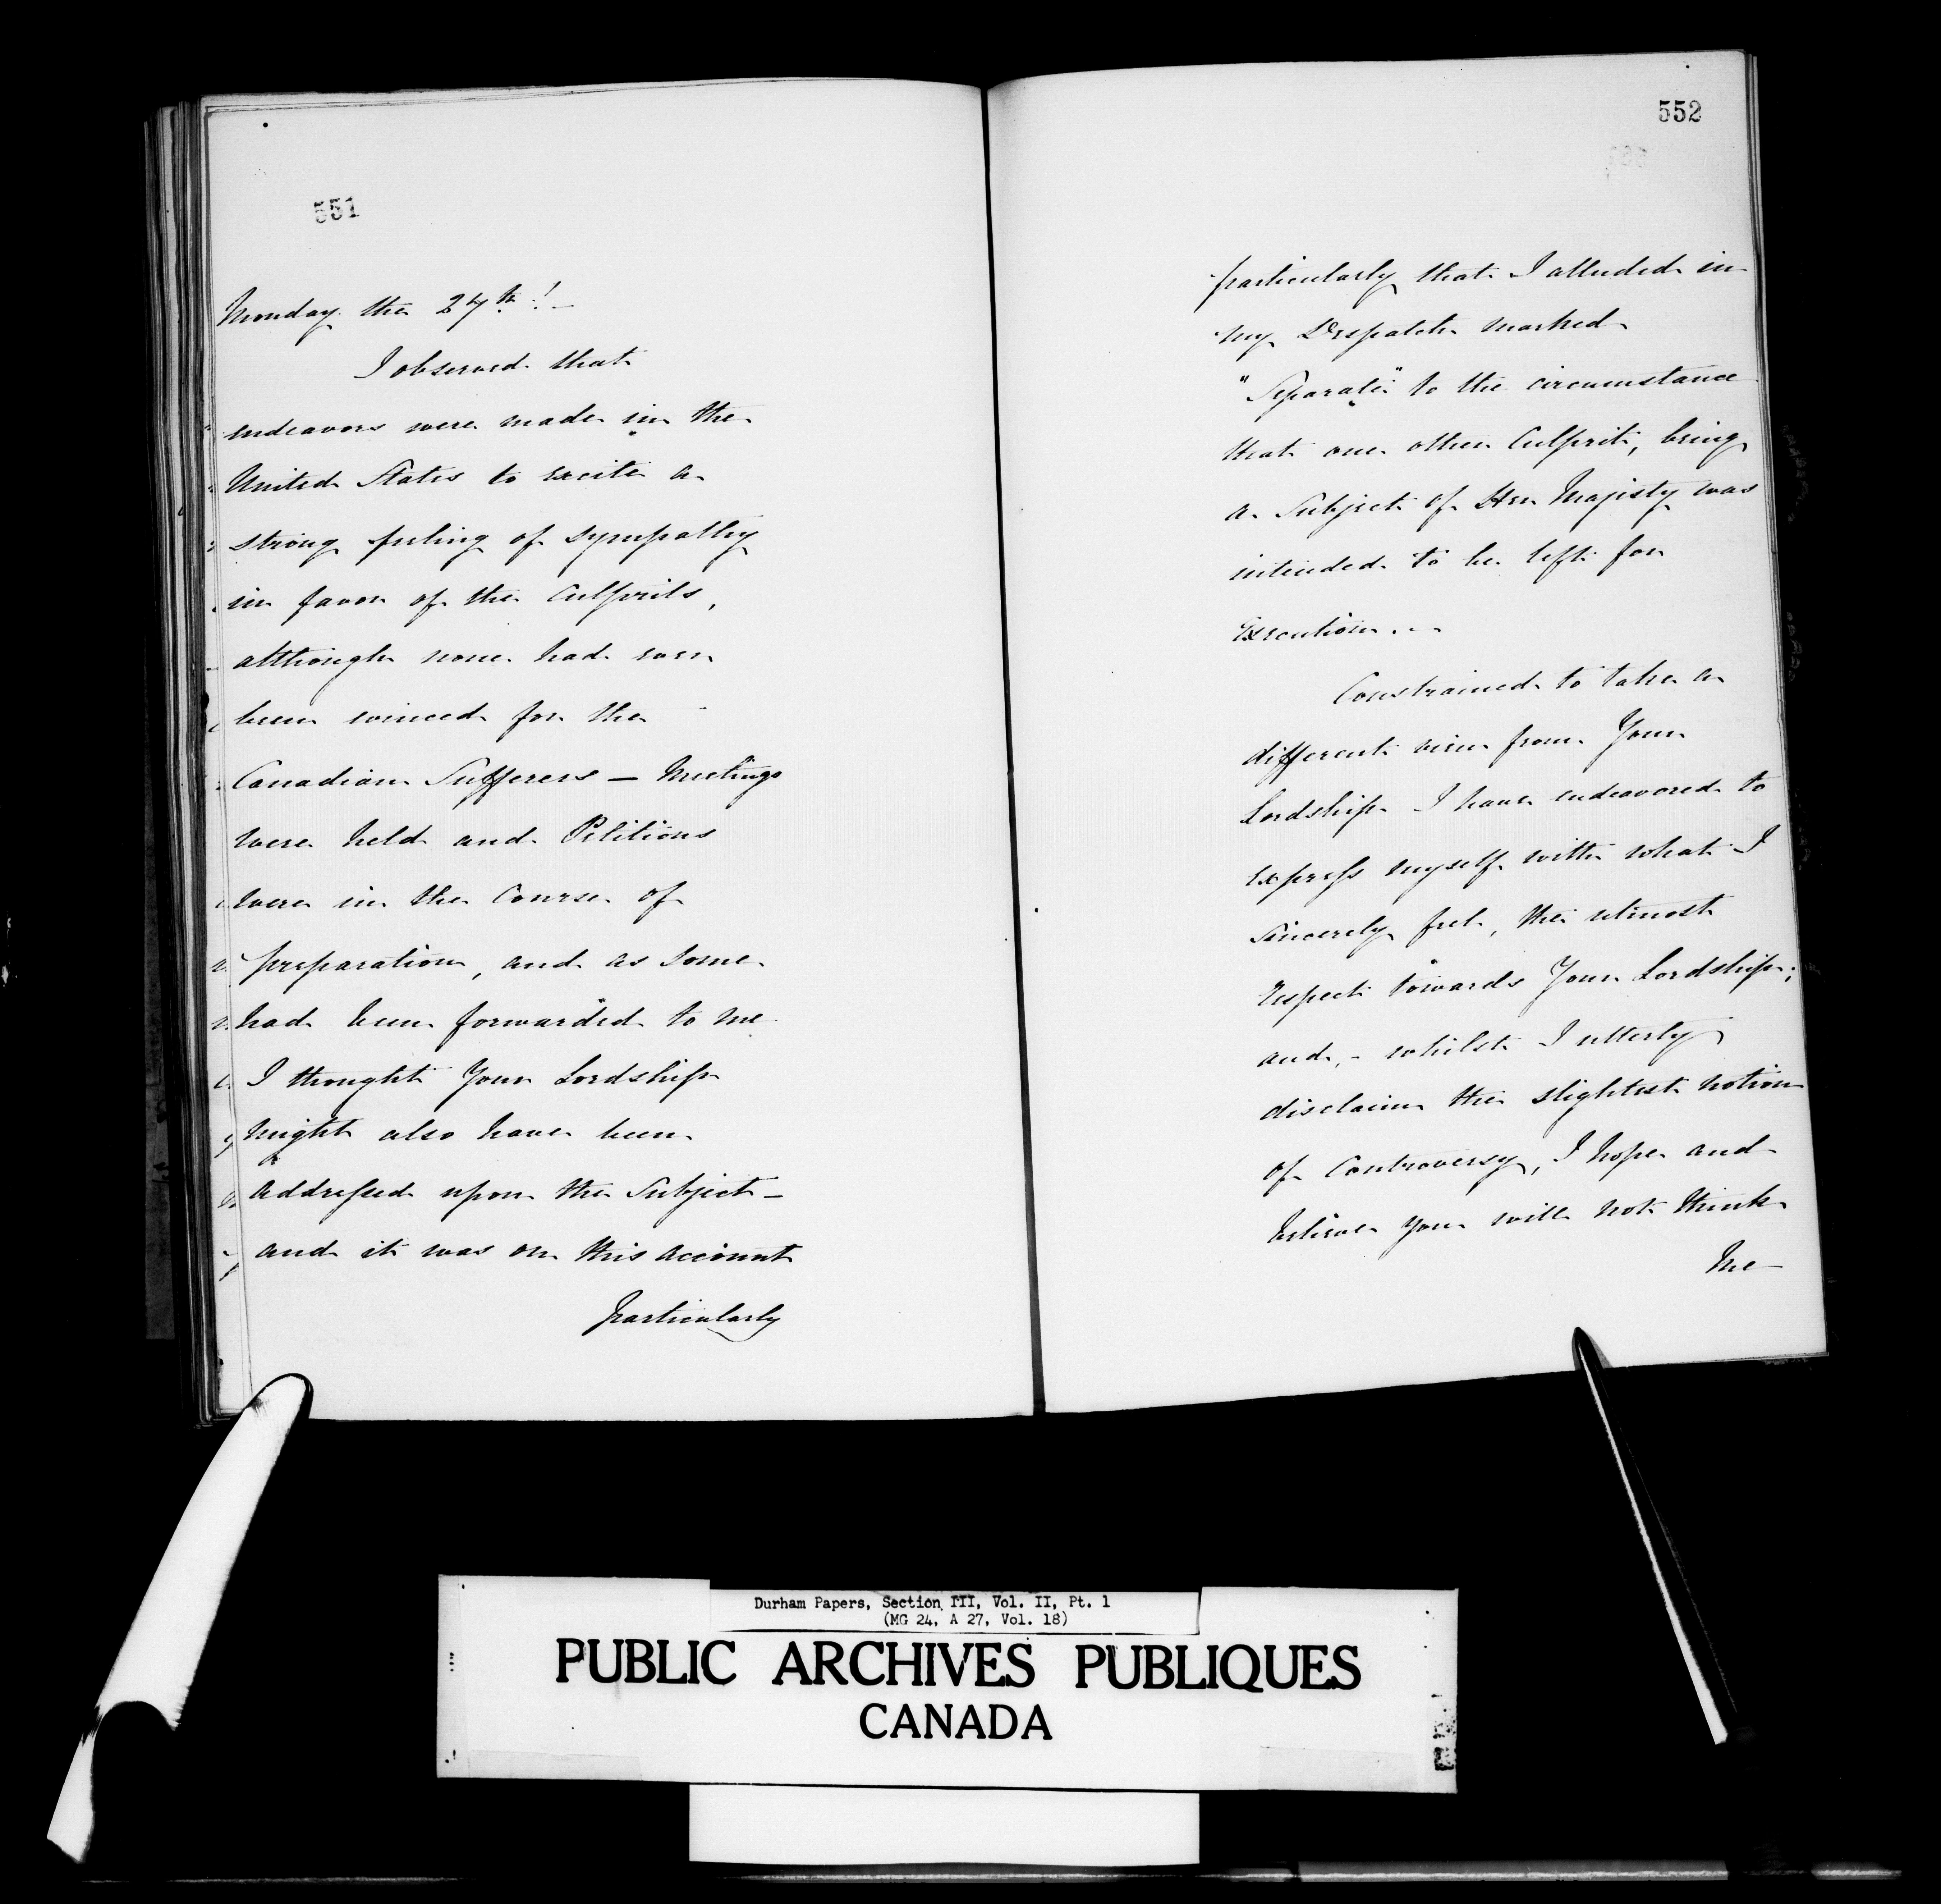 551
Monday the 27th!—
I observed that
endeavors were made in the
United States to excite a
strong feeling of sympathy
in favor of the Culprits,
although none had ever
been evinced for the
Canadian Sufferers — Meetings
were held and Petitions
were in the Course of
preparation, and as some
had been forwarded to me
I thought Your Lordship
might also have been
addressed upon the Subject —
and it was on this account
particularly
552
particularly that I alluded in
my Despatch marked
"Separate" to the circumstance
that one other Culprit, being
a Subject of Her Majesty was
intended to be left for
Execution. —
Constrained to take a
different view from Your
Lordship I have endeavored to
express myself with what I
sincerely feel, the utmost
respect towards Your Lordship;
and, - whilst I utterly
disclaim the slightest notion
of Controversy, I hope and
believe you will not think
me
Durham Papers, Section III, Vol. II, Pt. 1
(MG 24, A 27, Vol. 18)
PUBLIC ARCHIVES PUBLIQUES
CANADA